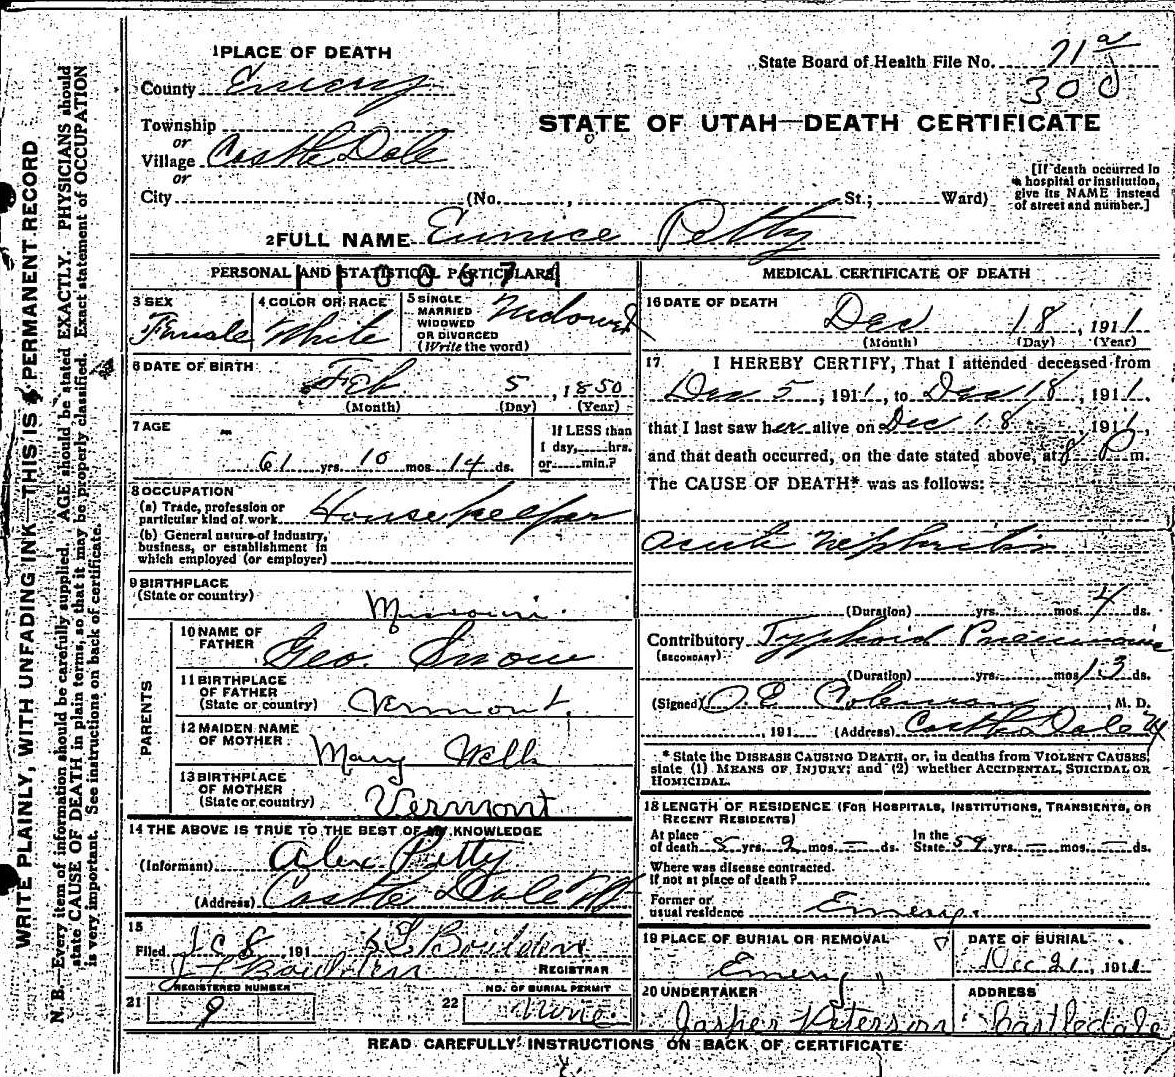 WRITE PLAINLY, WITH UNFADING INK—THIS IS A PERMANENT RECORD
N. B.—Every item of information should be carefully supplied. AGE should be stated EXACTLY. PHYSICIANS should
state CAUSE OF DEATH in plain terms, so that it may be properly classified. Exact statement of OCCUPATION
is very important. See instructions on back of certificate.
1 PLACE OF DEATH
County Emery
Township
or
Village Castle Dale
or
City (No. , St.; Ward)
State Board of Health File No. 71 a
300
STATE OF UTAH—DEATH CERTIFICATE
[If death occurred in
a hospital or institution,
give its NAME instead
of street and number.]
2 FULL NAME Eunice Petty
PERSONAL AND STATISTICAL PARTICULARS
3 SEX
Female
4 COLOR OR RACE
White
5 SINGLE
MARRIED
WIDOWED
OR DIVORCED
(Write the word)
Widowed
6 DATE OF BIRTH
Feb 5, 1850
(Month) (Day) (Year)
7 AGE
61 yrs. 10 mos. 14 ds.
If LESS than
1 day, hrs.
or min.?
8 OCCUPATION
(a) Trade, profession or
particular kind of work Housekeeper
(b) General nature of industry,
business, or establishment in
which employed (or employer)
9 BIRTHPLACE
(State or country)
Missouri.
PARENTS
10 NAME OF
FATHER
Geo. Snow
11 BIRTHPLACE
OF FATHER
(State or country)
Vermont.
12 MAIDEN NAME
OF MOTHER
Mary Wells
13 BIRTHPLACE
OF MOTHER
(State or country)
Vermont
14 THE ABOVE IS TRUE TO THE BEST OF MY KNOWLEDGE
(Informant) Alex Petty
(Address) Castle Dale
15
Filed 8, 191
REGISTRAR
REGISTERED NUMBER
21 9
NO. OF BURIAL PERMIT
22 None.
MEDICAL CERTIFICATE OF DEATH
16 DATE OF DEATH
Dec 18, 1911
(Month) (Day) (Year)
17 I HEREBY CERTIFY, That I attended deceased from
Dec 5, 1911, to Dec 18, 1911
that I last saw her alive on Dec 18, 1911,
and that death occurred, on the date stated above, at 8 P m.
The CAUSE OF DEATH* was as follows:
Acute Nephritis
(Duration) yrs. mos. 4 ds.
Contributory Typhoid Pneumonia
(SECONDARY)
(Duration) yrs. mos. 13 ds.
(Signed) Coleman, M. D.
, 191 (Address) Castle Dale
* State the DISEASE CAUSING DEATH, or, in deaths from VIOLENT CAUSES,
state (1) MEANS OF INJURY; and (2) whether ACCIDENTAL, SUICIDAL OR
HOMICIDAL.
18 LENGTH OF RESIDENCE (FOR HOSPITALS, INSTITUTIONS, TRANSIENTS, OR
RECENT RESIDENTS)
At place
of death 8 yrs. 2 mos. — ds.
In the
State 59 yrs. — mos. — ds.
Where was disease contracted.
If not at place of death?
Former or
usual residence Emery.
19 PLACE OF BURIAL OR REMOVAL
Emery
DATE OF BURIAL
Dec 21, 1911
20 UNDERTAKER
Jasper Peterson
ADDRESS
Castledale
READ CAREFULLY INSTRUCTIONS ON BACK OF CERTIFICATE